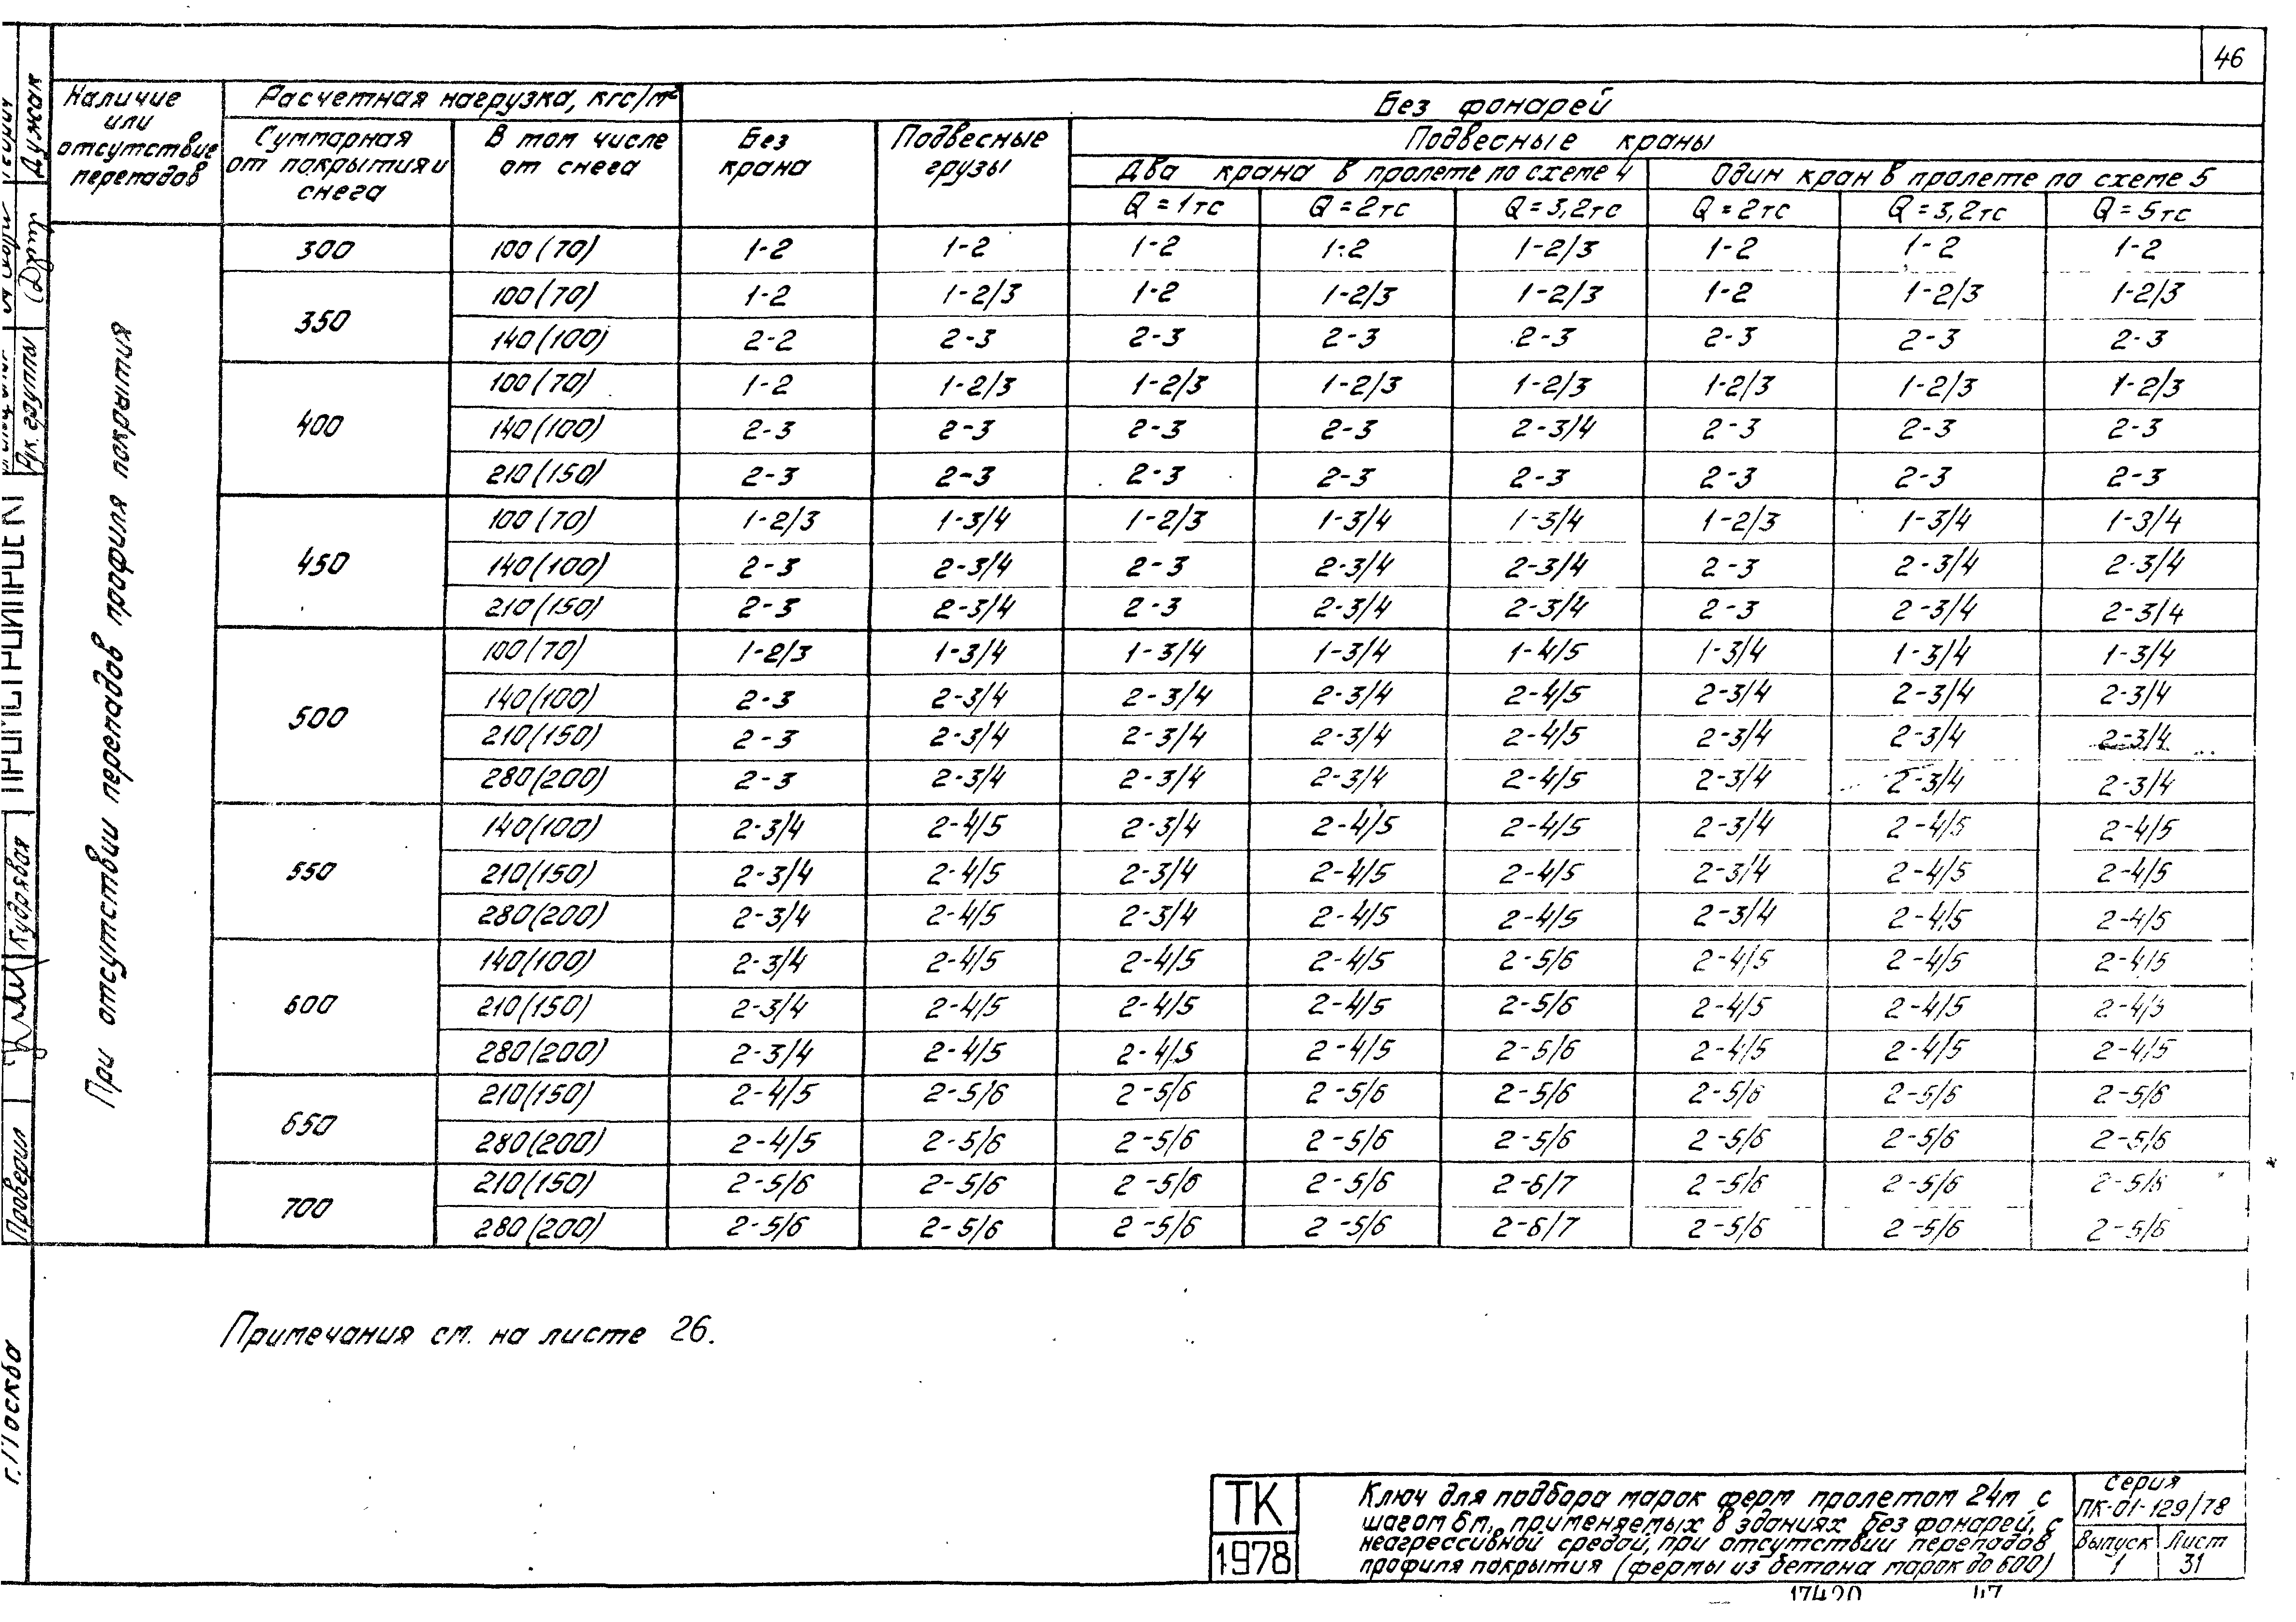 46
Наличие или отсутствие перепадов
Расчетная нагрузка, кгс/м²
Суммарная от покрытия и снега
В том числе от снега
Без фонарей
Без крана
Подвесные грузы
Подвесные краны
Два крана в пролете по схеме 4
Один кран в пролете по схеме 5
Q = 1тс Q = 2тс Q = 3,2тс Q = 2тс Q = 3,2тс Q = 5тс
При отсутствии перепадов профиля покрытия
300 100(70) 1-2 1-2 1-2 1-2 1-2/3 1-2 1-2 1-2
350 100(70) 1-2 1-2/3 1-2 1-2/3 1-2/3 1-2 1-2/3 1-2/3
140(100) 2-2 2-3 2-3 2-3 2-3 2-3 2-3 2-3
400 100(70) 1-2 1-2/3 1-2/3 1-2/3 1-2/3 1-2/3 1-2/3 1-2/3
140(100) 2-3 2-3 2-3 2-3 2-3/4 2-3 2-3 2-3
210(150) 2-3 2-3 2-3 2-3 2-3 2-3 2-3 2-3
450 100(70) 1-2/3 1-3/4 1-2/3 1-3/4 1-3/4 1-2/3 1-3/4 1-3/4
140(100) 2-3 2-3/4 2-3 2-3/4 2-3/4 2-3 2-3/4 2-3/4
210(150) 2-3 2-3/4 2-3 2-3/4 2-3/4 2-3 2-3/4 2-3/4
500 100(70) 1-2/3 1-3/4 1-3/4 1-3/4 1-4/5 1-3/4 1-3/4 1-3/4
140(100) 2-3 2-3/4 2-3/4 2-3/4 2-4/5 2-3/4 2-3/4 2-3/4
210(150) 2-3 2-3/4 2-3/4 2-3/4 2-4/5 2-3/4 2-3/4 2-3/4
280(200) 2-3 2-3/4 2-3/4 2-3/4 2-4/5 2-3/4 2-3/4 2-3/4
550 140(100) 2-3/4 2-4/5 2-3/4 2-4/5 2-4/5 2-3/4 2-4/5 2-4/5
210(150) 2-3/4 2-4/5 2-3/4 2-4/5 2-4/5 2-3/4 2-4/5 2-4/5
280(200) 2-3/4 2-4/5 2-3/4 2-4/5 2-4/5 2-3/4 2-4/5 2-4/5
600 140(100) 2-3/4 2-4/5 2-4/5 2-4/5 2-5/6 2-4/5 2-4/5 2-4/5
210(150) 2-3/4 2-4/5 2-4/5 2-4/5 2-5/6 2-4/5 2-4/5 2-4/5
280(200) 2-3/4 2-4/5 2-4/5 2-4/5 2-5/6 2-4/5 2-4/5 2-4/5
650 210(150) 2-4/5 2-5/6 2-5/6 2-5/6 2-5/6 2-5/6 2-5/6 2-5/6
280(200) 2-4/5 2-5/6 2-5/6 2-5/6 2-5/6 2-5/6 2-5/6 2-5/6
700 210(150) 2-5/6 2-5/6 2-5/6 2-5/6 2-6/7 2-5/6 2-5/6 2-5/6
280(200) 2-5/6 2-5/6 2-5/6 2-5/6 2-6/7 2-5/6 2-5/6 2-5/6
Примечания см. на листе 26.
Дужак
Рук. группы
Кудрявая
Проверил
г. Москва
ТК
1978
Ключ для подбора марок ферм пролетом 24м с
шагом 6м, применяемых в зданиях без фонарей, с
неагрессивной средой, при отсутствии перепадов
профиля покрытия (фермы из бетона марок до 600)
серия
ПК-01-129/78
Выпуск Лист
1 31
17420 47